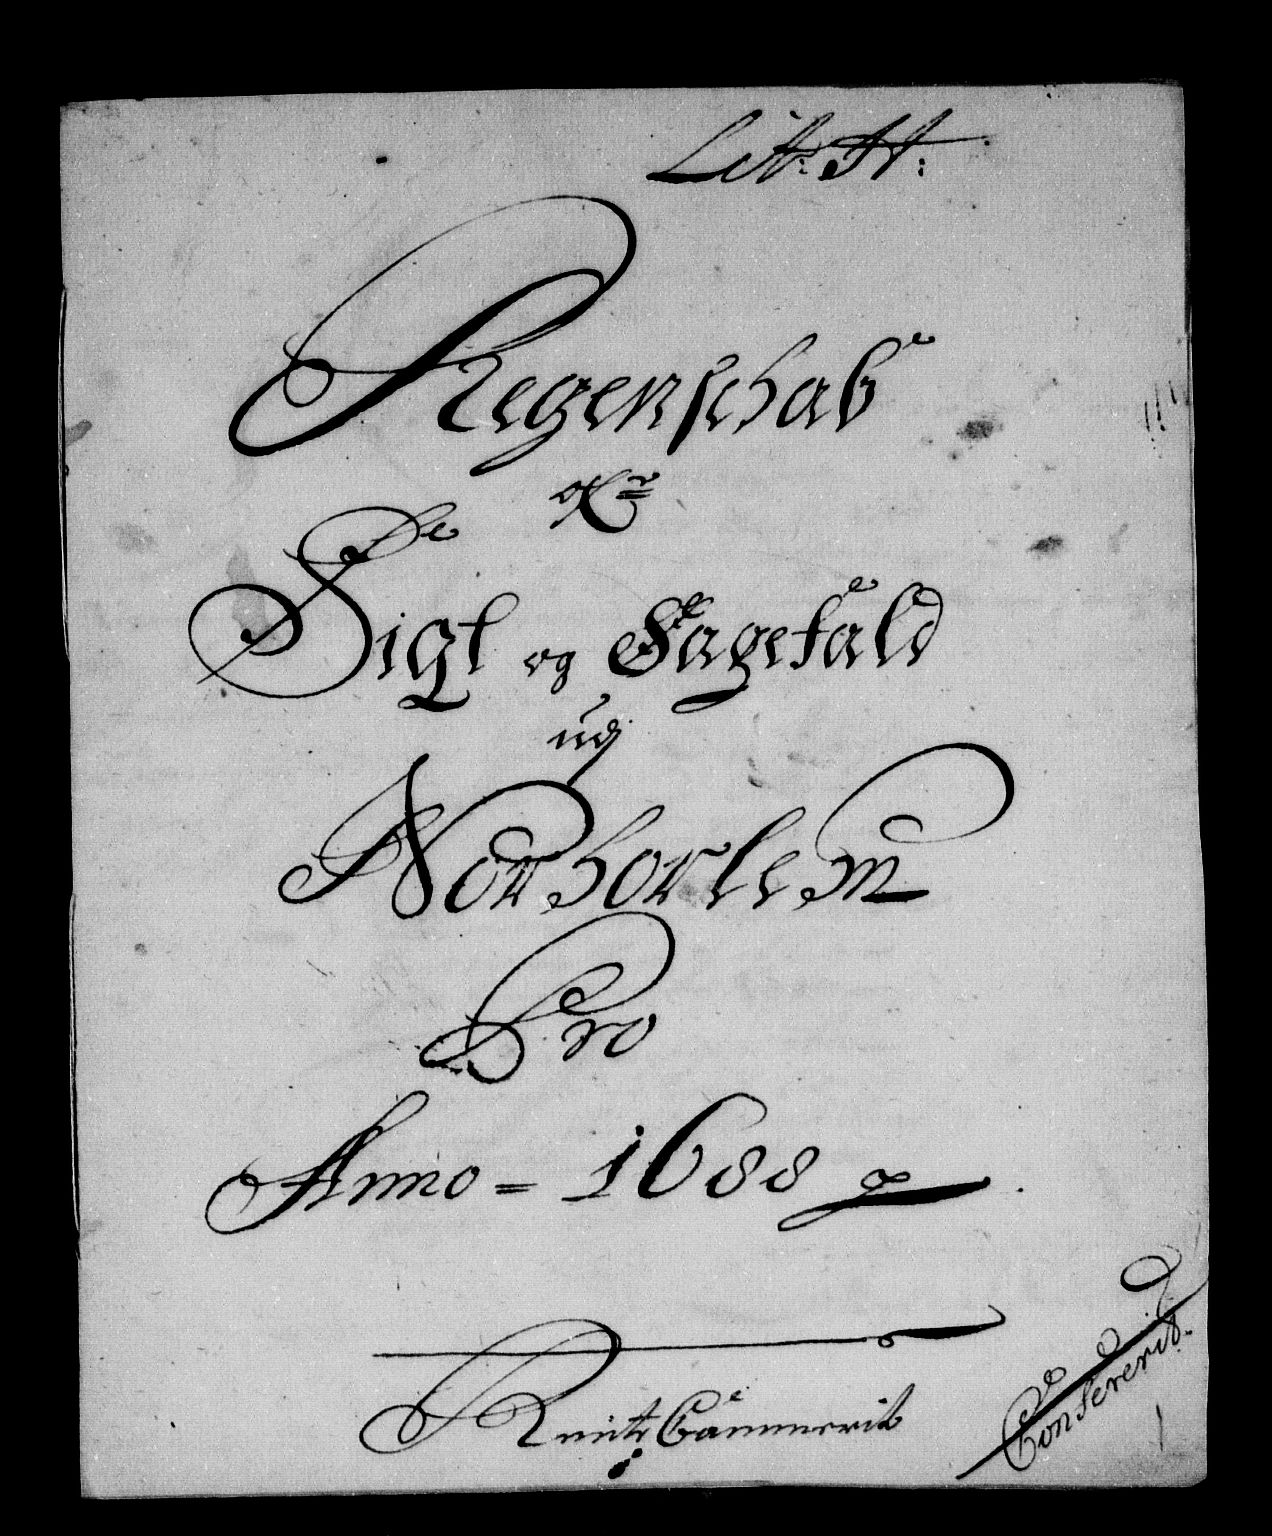 Litr: H:
Regenschab
for
Sigt og Sagefald
udj
Nordhorlem
Pro
Anno = 1688
Rendte Cammerit
Confererit.